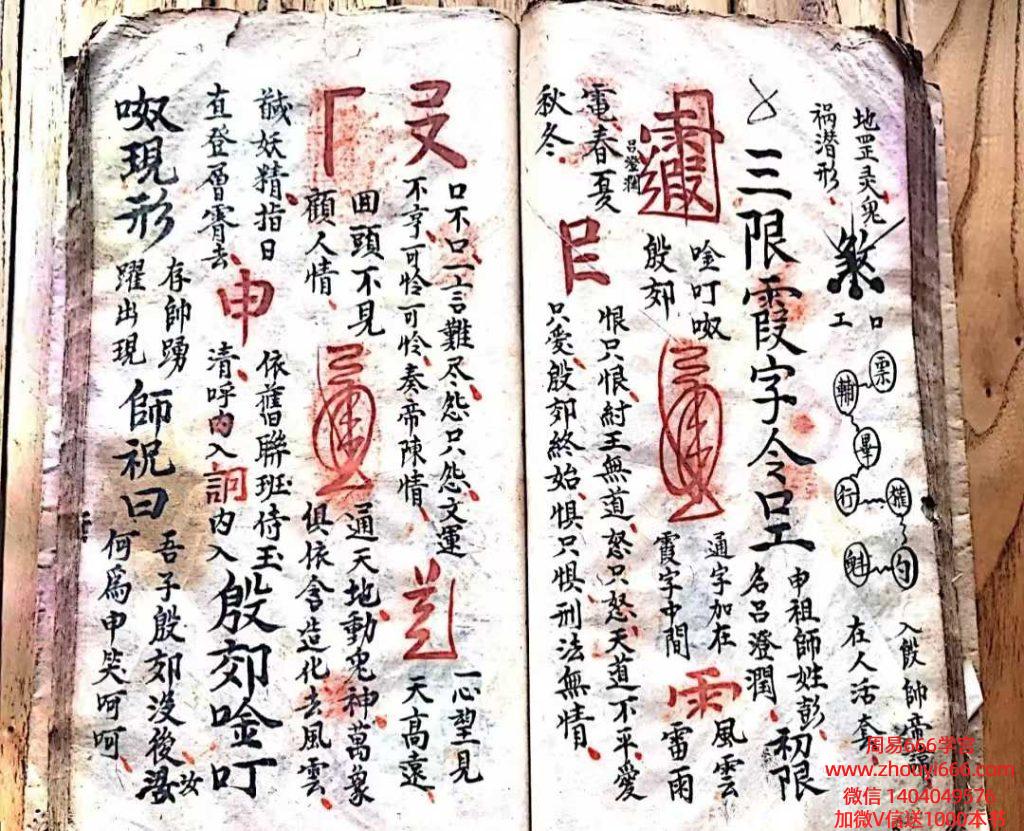 地罡灵鬼
祸潜形
煞
口
工
票
輔
畢
行
權
魁
勺
入殷帥帝諱
在人活套
三限霞字令
申祖師姓彭
名呂澄潤
初限
唫叮呶
殷郊
通字加在
霞字中間
雨
風雲
雷雨
電春夏
秋冬
呂澄潤
恨只恨紂王無道怒只怒天道不平愛
只愛殷郊終始惧只惧刑法無情
口不口一言難尽怨只怨文運
不亨可怜可怜奏帝陳情
一心望見
天高遠
回頭不見
顧人情
通天地動鬼神萬象
俱依令造化去風雲
馘妖精指日
直登層霄去
申
依舊聯班侍玉
清呼内入詞内入
殷郊唫叮
呶現形
存帥踴
躍出現
師祝曰
吾子殷郊没後汝
何爲申笑呵呵
周易666学宫
www.zhouyi666.com
微信 1404049576
加微V信送1000本书